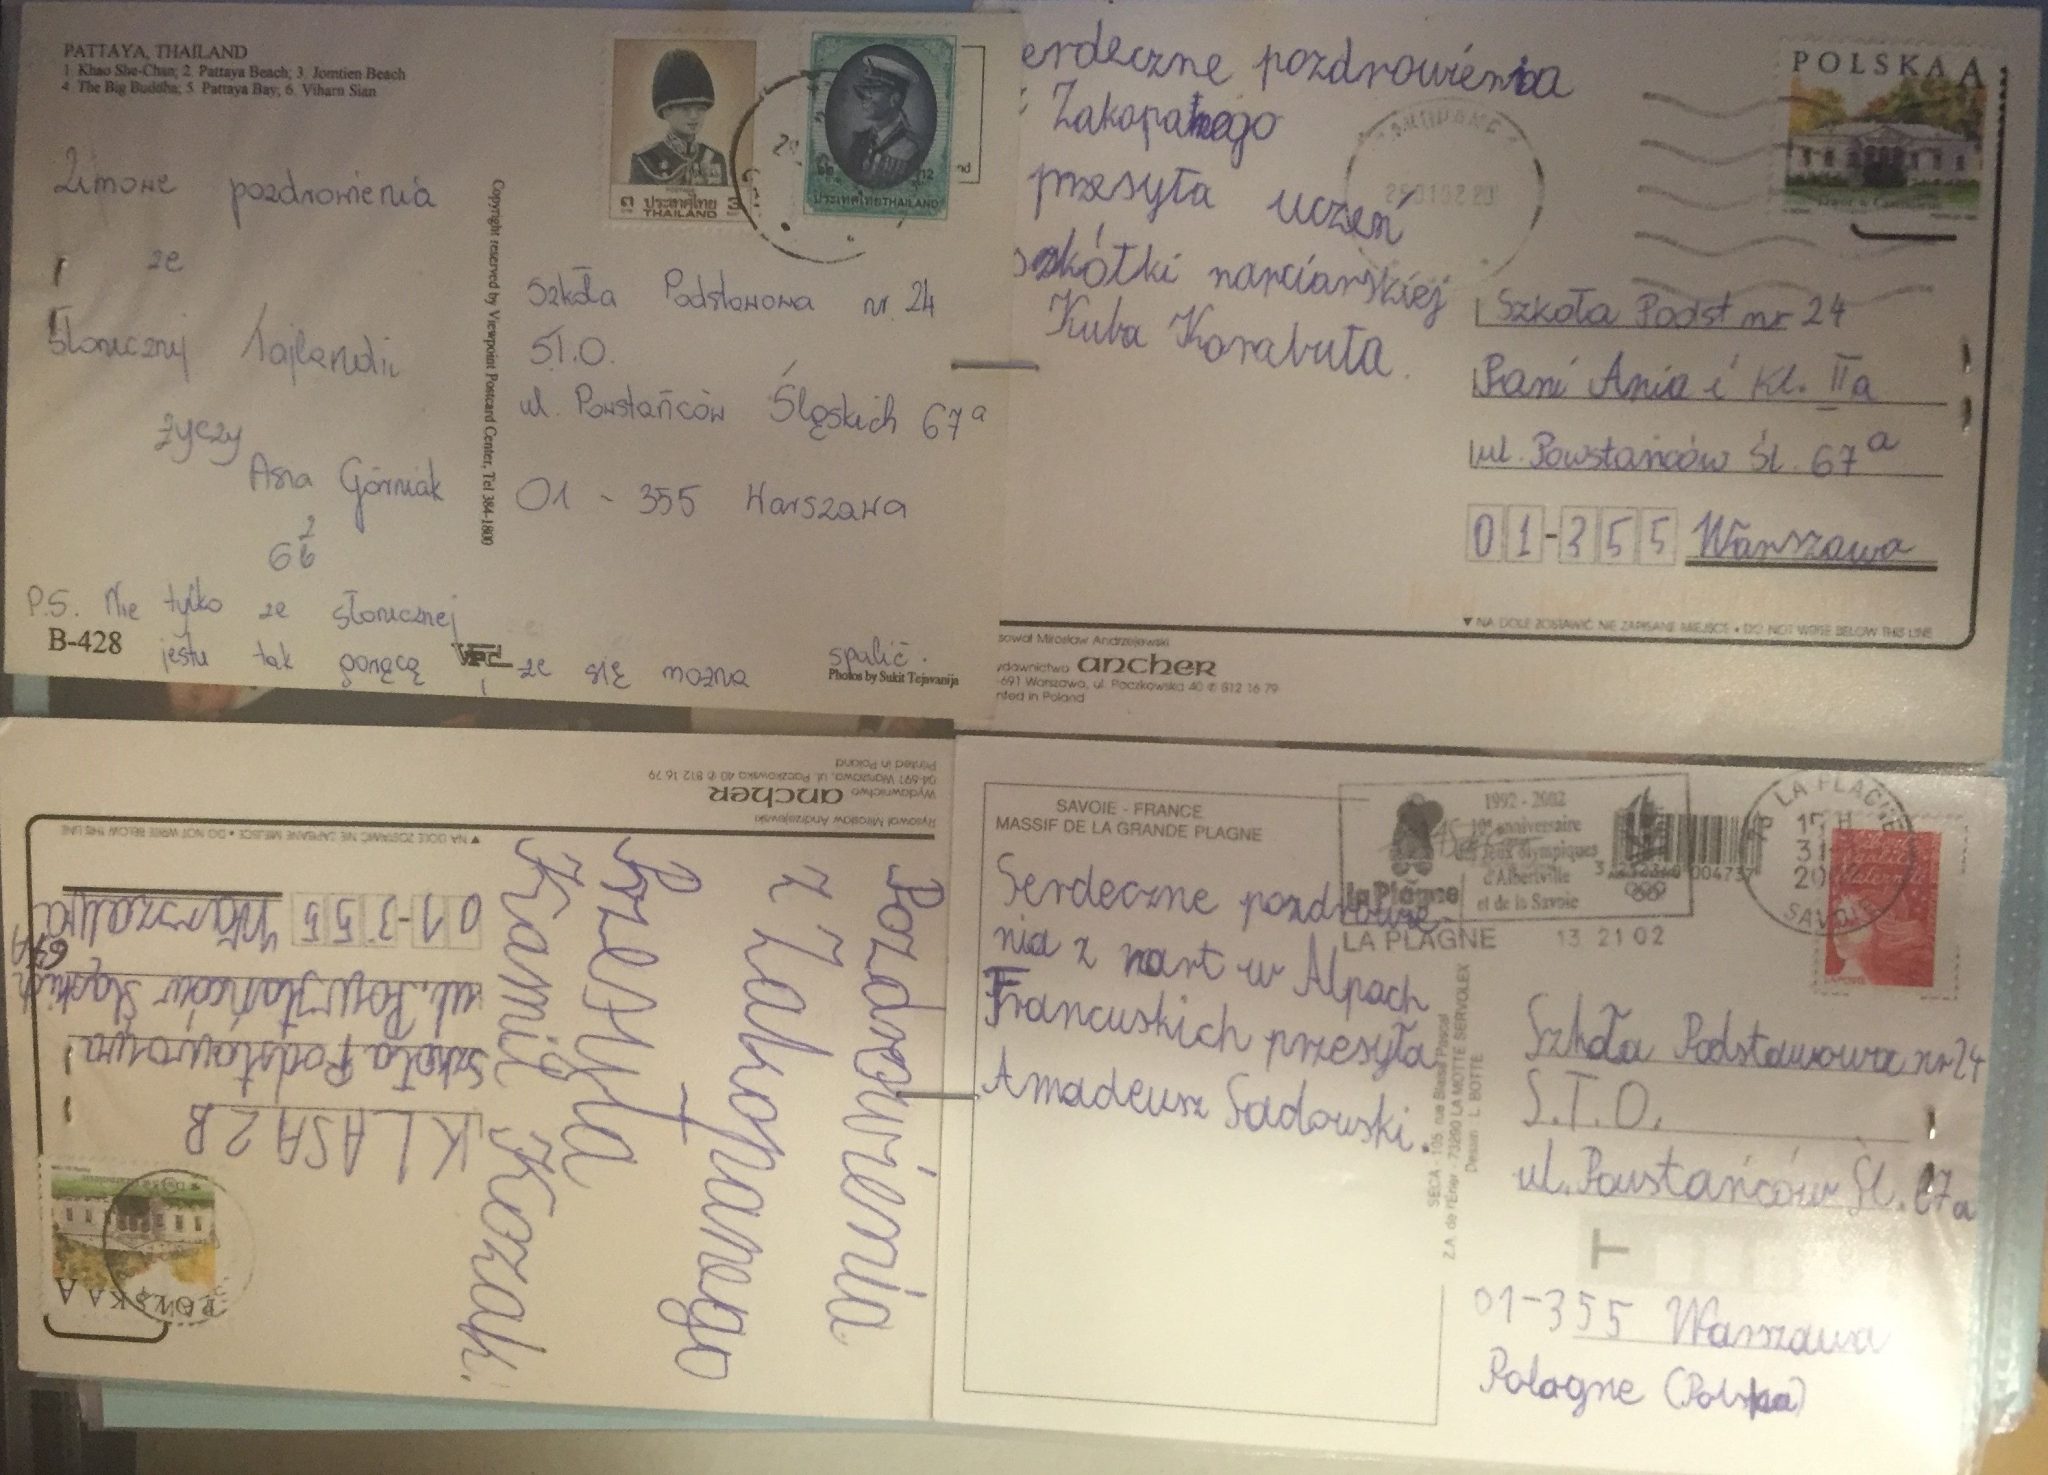 PATTAYA, THAILAND
1. Khao She-Chan; 2. Pattaya Beach; 3. Jomtien Beach
4. The Big Buddha; 5. Pattaya Bay; 6. Viharn Sian
Zimowe pozdrowienia
ze
słonicznej Tajlandii
życzy
Asia Górniak
P.S. Nie tylko ze słonicznej
jestu tak gorącą że się można spalić.
B-428
VPC
Photos by Sukit Tejavanija
Copyright reserved by Viewpoint Postcard Center, Tel 384-1800
ประเทศไทย 3
THAILAND
ประเทศไทย THAILAND
Szkoła Podstawowa nr. 24
S.T.O.
ul. Powstańców Śląskich 67a
01 - 355 Warszawa
erdeczne pozdrowienia
z Zakopanego
przesyła uczeń
szkółki narciarskiej
Kuba Korabuta.
POLSKA A
Szkoła Podst nr 24
Pani Ania i kl. IIa
ul. Powstańców Śl. 67a
01-355 Warszawa
▼ NA DOLE ZOSTAWIĆ NIE ZAPISANE MIEJSCE • DO NOT WRITE BELOW THIS LINE
sował Mirosław Andrzejewski
ydawnictwo ancher
-691 Warszawa, ul. Paczkowska 40 ✆ 812 16 79
nted in Poland
Pozdrowienia
z Zakopanego
Przesyła
Kamil Kozak.
POLSKA A
KLASA 2B
Szkoła Podstawowa
ul. Powstańców Śląskich
67A
01-355 Warszawa
▼ NA DOLE ZOSTAWIĆ NIE ZAPISANE MIEJSCE • DO NOT WRITE BELOW THIS LINE
Rysował Mirosław Andrzejewski
Wydawnictwo ancher
04-691 Warszawa, ul. Paczkowska 40 ✆ 812 16 79
Printed in Poland
SAVOIE - FRANCE
MASSIF DE LA GRANDE PLAGNE
Serdeczne pozdrowie-
nia z nart w Alpach
Francuskich przesyła
Amadeusz Sadowski.
1992 - 2002
10e anniversaire
des Jeux olympiques
d'Albertville
et de la Savoie
la Plagne
LA PLAGNE 13 21 02
LA PLAGNE
SAVOIE
SECA - 105, rue Blaise Pascal
Z.A. de l'Erier - 73290 LA MOTTE SERVOLEX
Dessin : L. BOTTE
Szkoła Podstawowa nr 24
S.T.O.
ul. Powstańców Śl. 67a
T
01-355 Warszawa
Pologne (Polska)